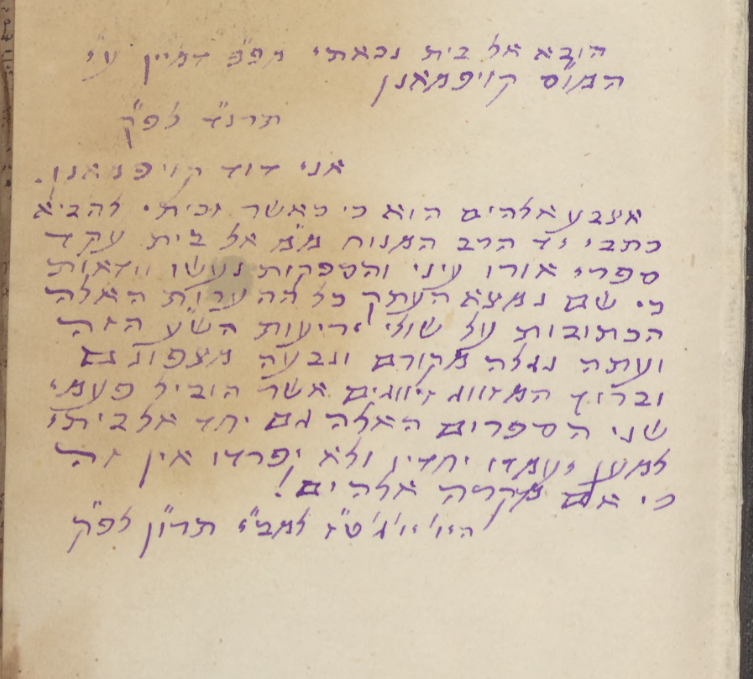 הובא אל בית נכאתי מפ״פ דמיין ע״י
המו״ס קויפמאנן
תרנ״ד לפ״ק
אני דוד קויפמאנן.
אצבע אלהים הוא כי כאשר זכיתי להביא
כתבי יד הרב המנוח מ״מ אל בית עקד
ספרי אורו עיני והספקות נעשו וודאות
כי שם נמצא העתק כל ההערות האלה
הכתובות על שולי יריעות הש״ע הזה
ועתה נגלה מקורם ונבעה מצפונם
וברוך המזווג זיווגים אשר הוביל פעמי
שני הספרים האלה גם יחד אל ביתי
למען יעמדו יחדיו ולא יפרדו אין זה
כי אם מקרה אלהים!
לפ״ק